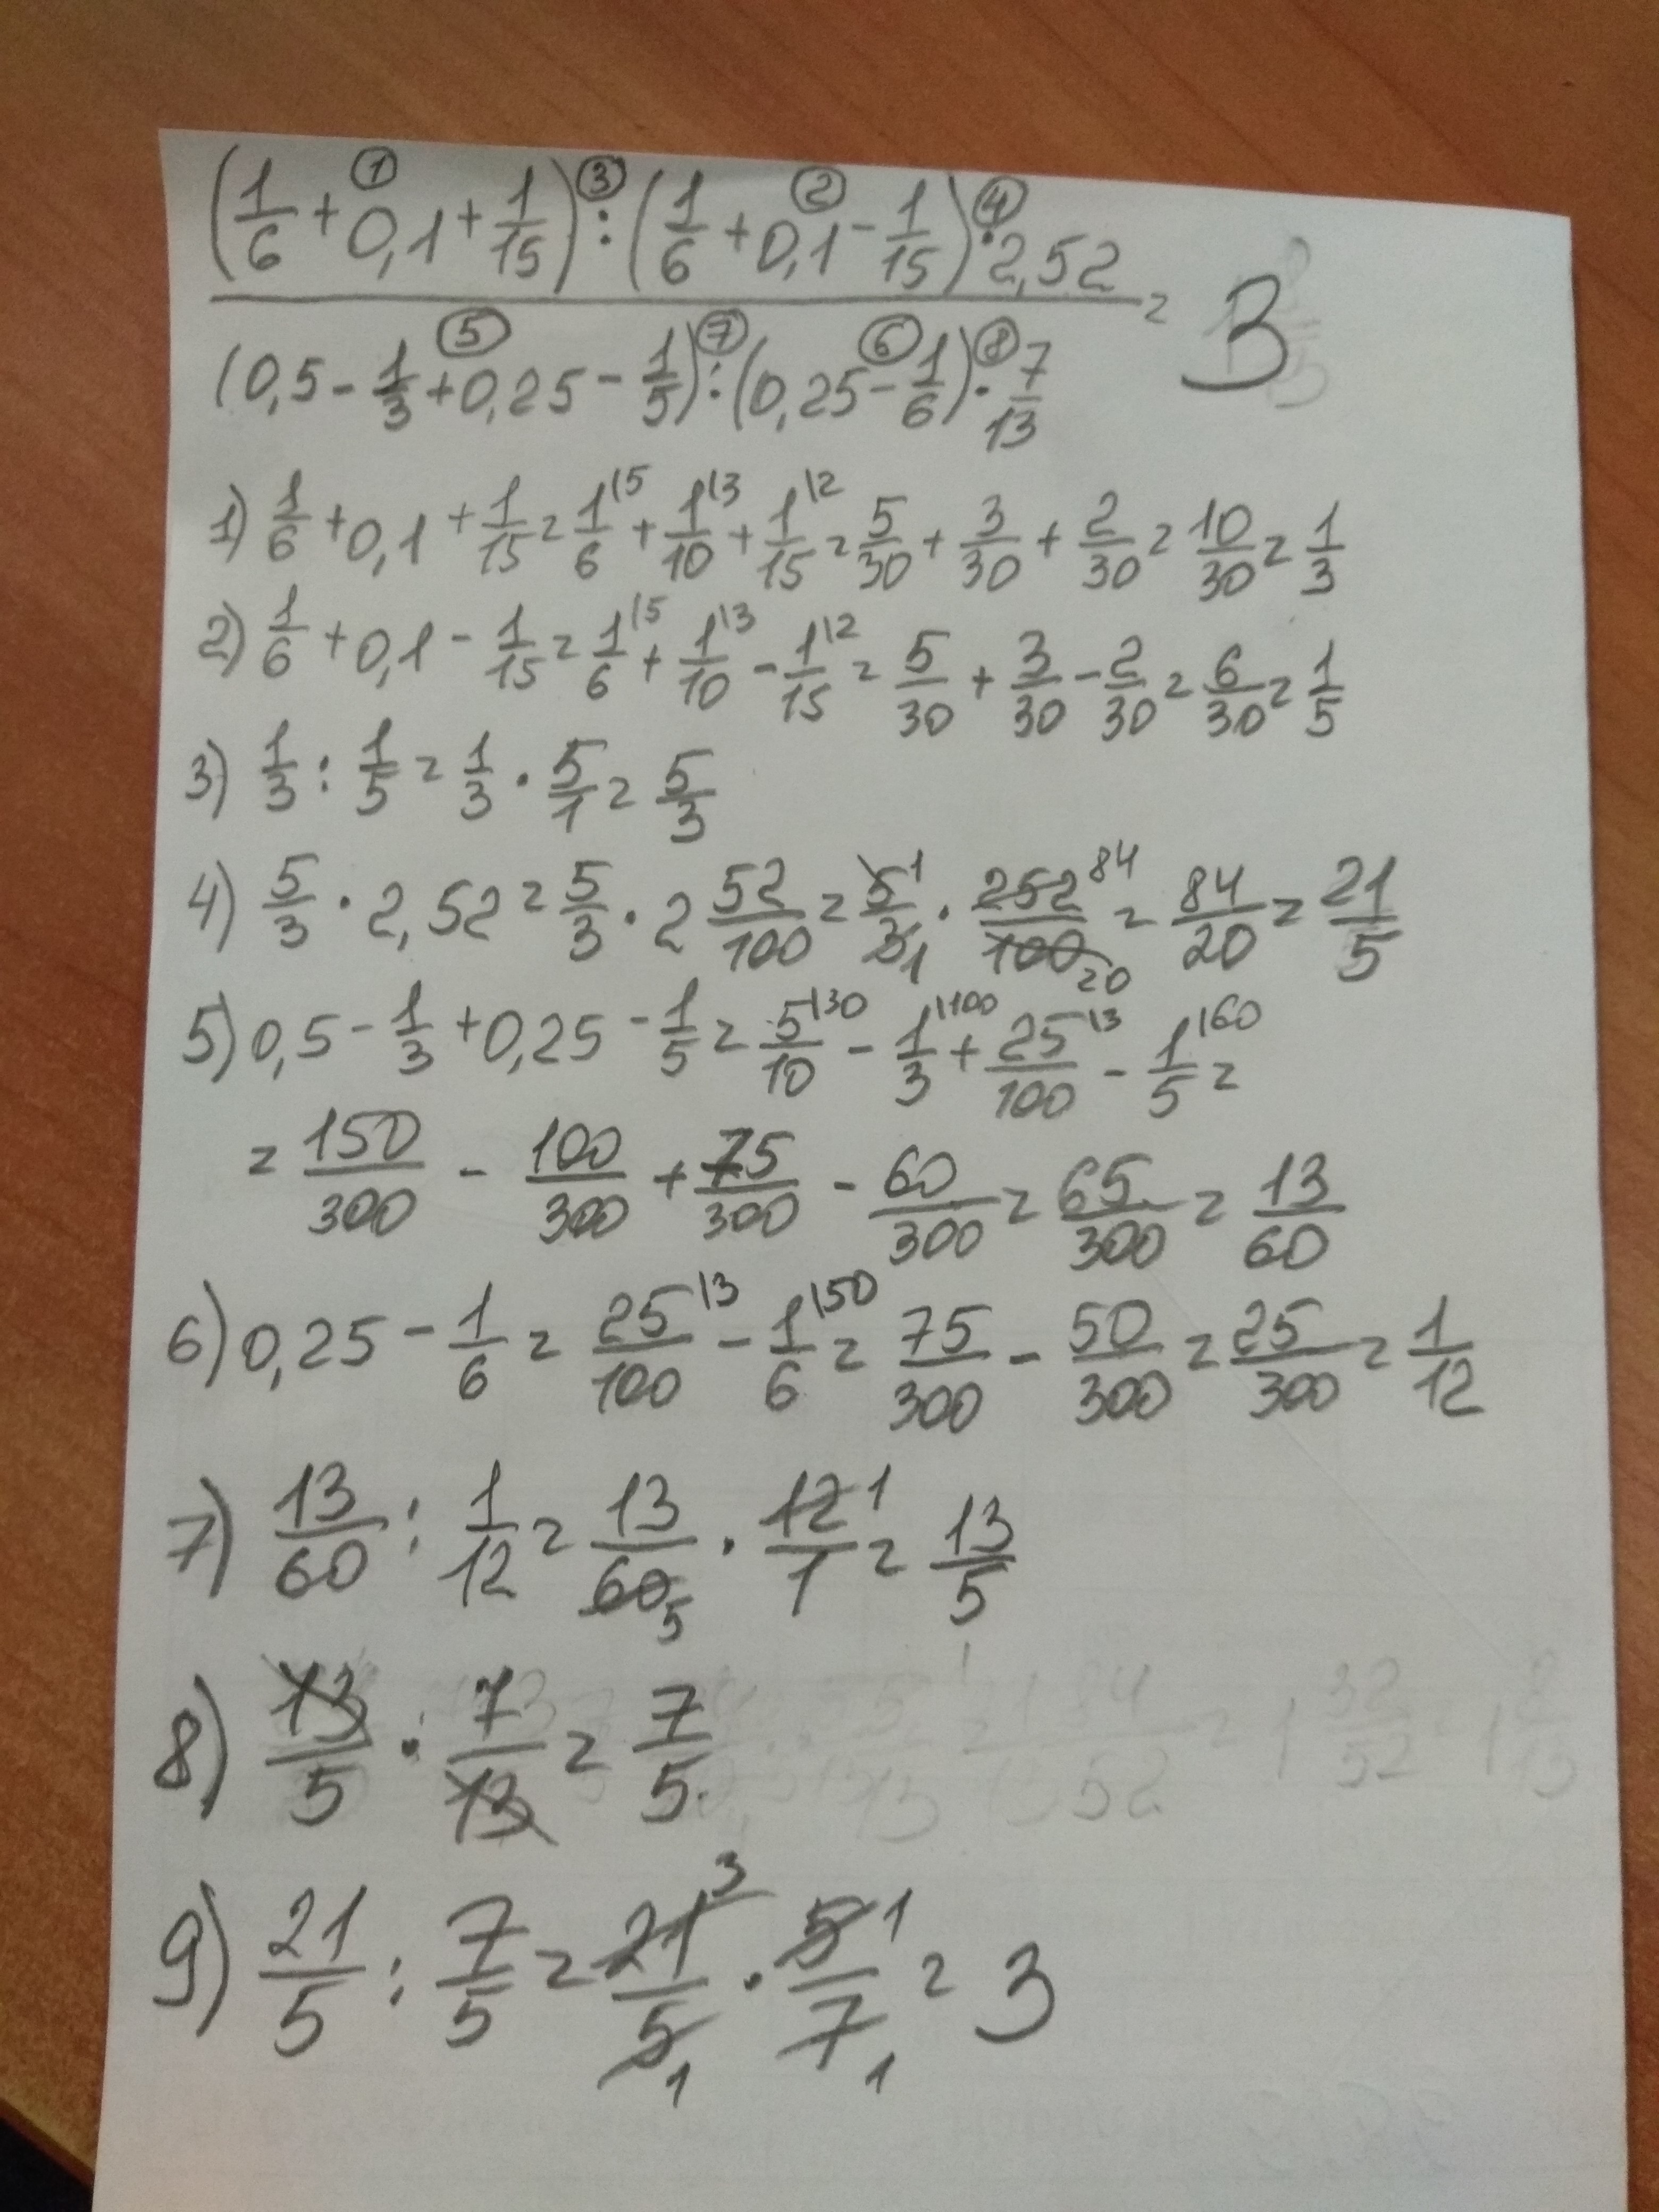 (1/6 + 0,1 + 1/15) : (1/6 + 0,1 - 1/15) · 2,52
① ③ ② ④
(0,5 - 1/3 + 0,25 - 1/5) : (0,25 - 1/6) · 7/13 = 3
⑤ ⑦ ⑥ ⑧
1) 1/6 + 0,1 + 1/15 = 1/6 \5 + 1/10 \3 + 1/15 \2 = 5/30 + 3/30 + 2/30 = 10/30 = 1/3
2) 1/6 + 0,1 - 1/15 = 1/6 \5 + 1/10 \3 - 1/15 \2 = 5/30 + 3/30 - 2/30 = 6/30 = 1/5
3) 1/3 : 1/5 = 1/3 · 5/1 = 5/3
4) 5/3 · 2,52 = 5/3 · 2 52/100 = 5 1/3 1 · 252 84/100 20 = 84/20 = 21/5
5) 0,5 - 1/3 + 0,25 - 1/5 = 5/10 \30 - 1/3 \100 + 25/100 \3 - 1/5 \60 =
= 150/300 - 100/300 + 75/300 - 60/300 = 65/300 = 13/60
6) 0,25 - 1/6 = 25/100 \3 - 1/6 \50 = 75/300 - 50/300 = 25/300 = 1/12
7) 13/60 : 1/12 = 13/60 5 · 12 1/1 = 13/5
8) 13/5 · 7/13 = 7/5
9) 21/5 : 7/5 = 21 3/5 1 · 5 1/7 1 = 3